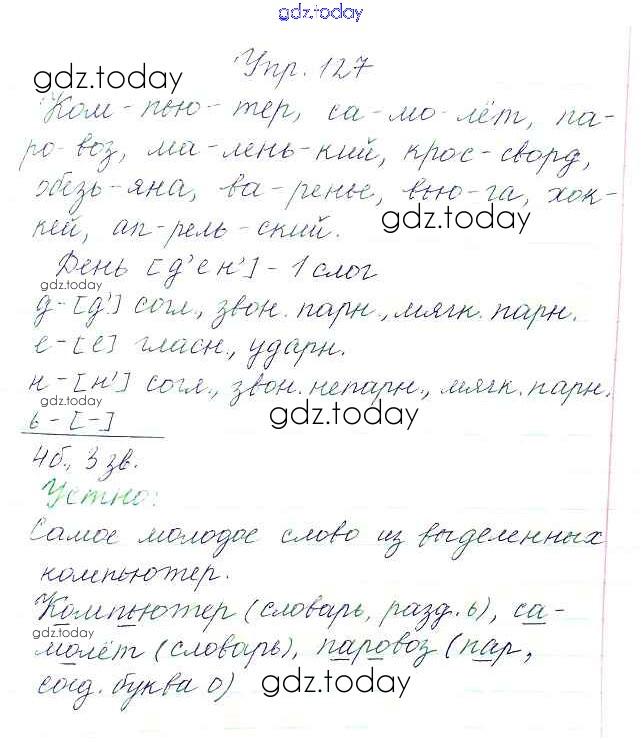 gdz.today
Упр. 127
gdz.today
Ком - пью - тер, са - мо - лёт, па-
ро - воз, ма - лень - кий, крос - сворд,
обезь - яна, ва - ренье, вью - га, хок-
gdz.today
кей, ап - рель - ский.
День [д'ен'] - 1 слог
gdz.today
д - [д'] согл., звон. парн., мягк. парн.
е - [е] гласн., ударн.
н - [н'] согл., звон. непарн., мягк. парн.
gdz.today
ь - [-]
gdz.today
4б., 3 зв.
Устно:
Самое молодое слово из выделенных
компьютер.
Компьютер (словарь, разд. ь), са-
gdz.today
молёт (словарь), паровоз (пар,
соед. буква о)
gdz.today